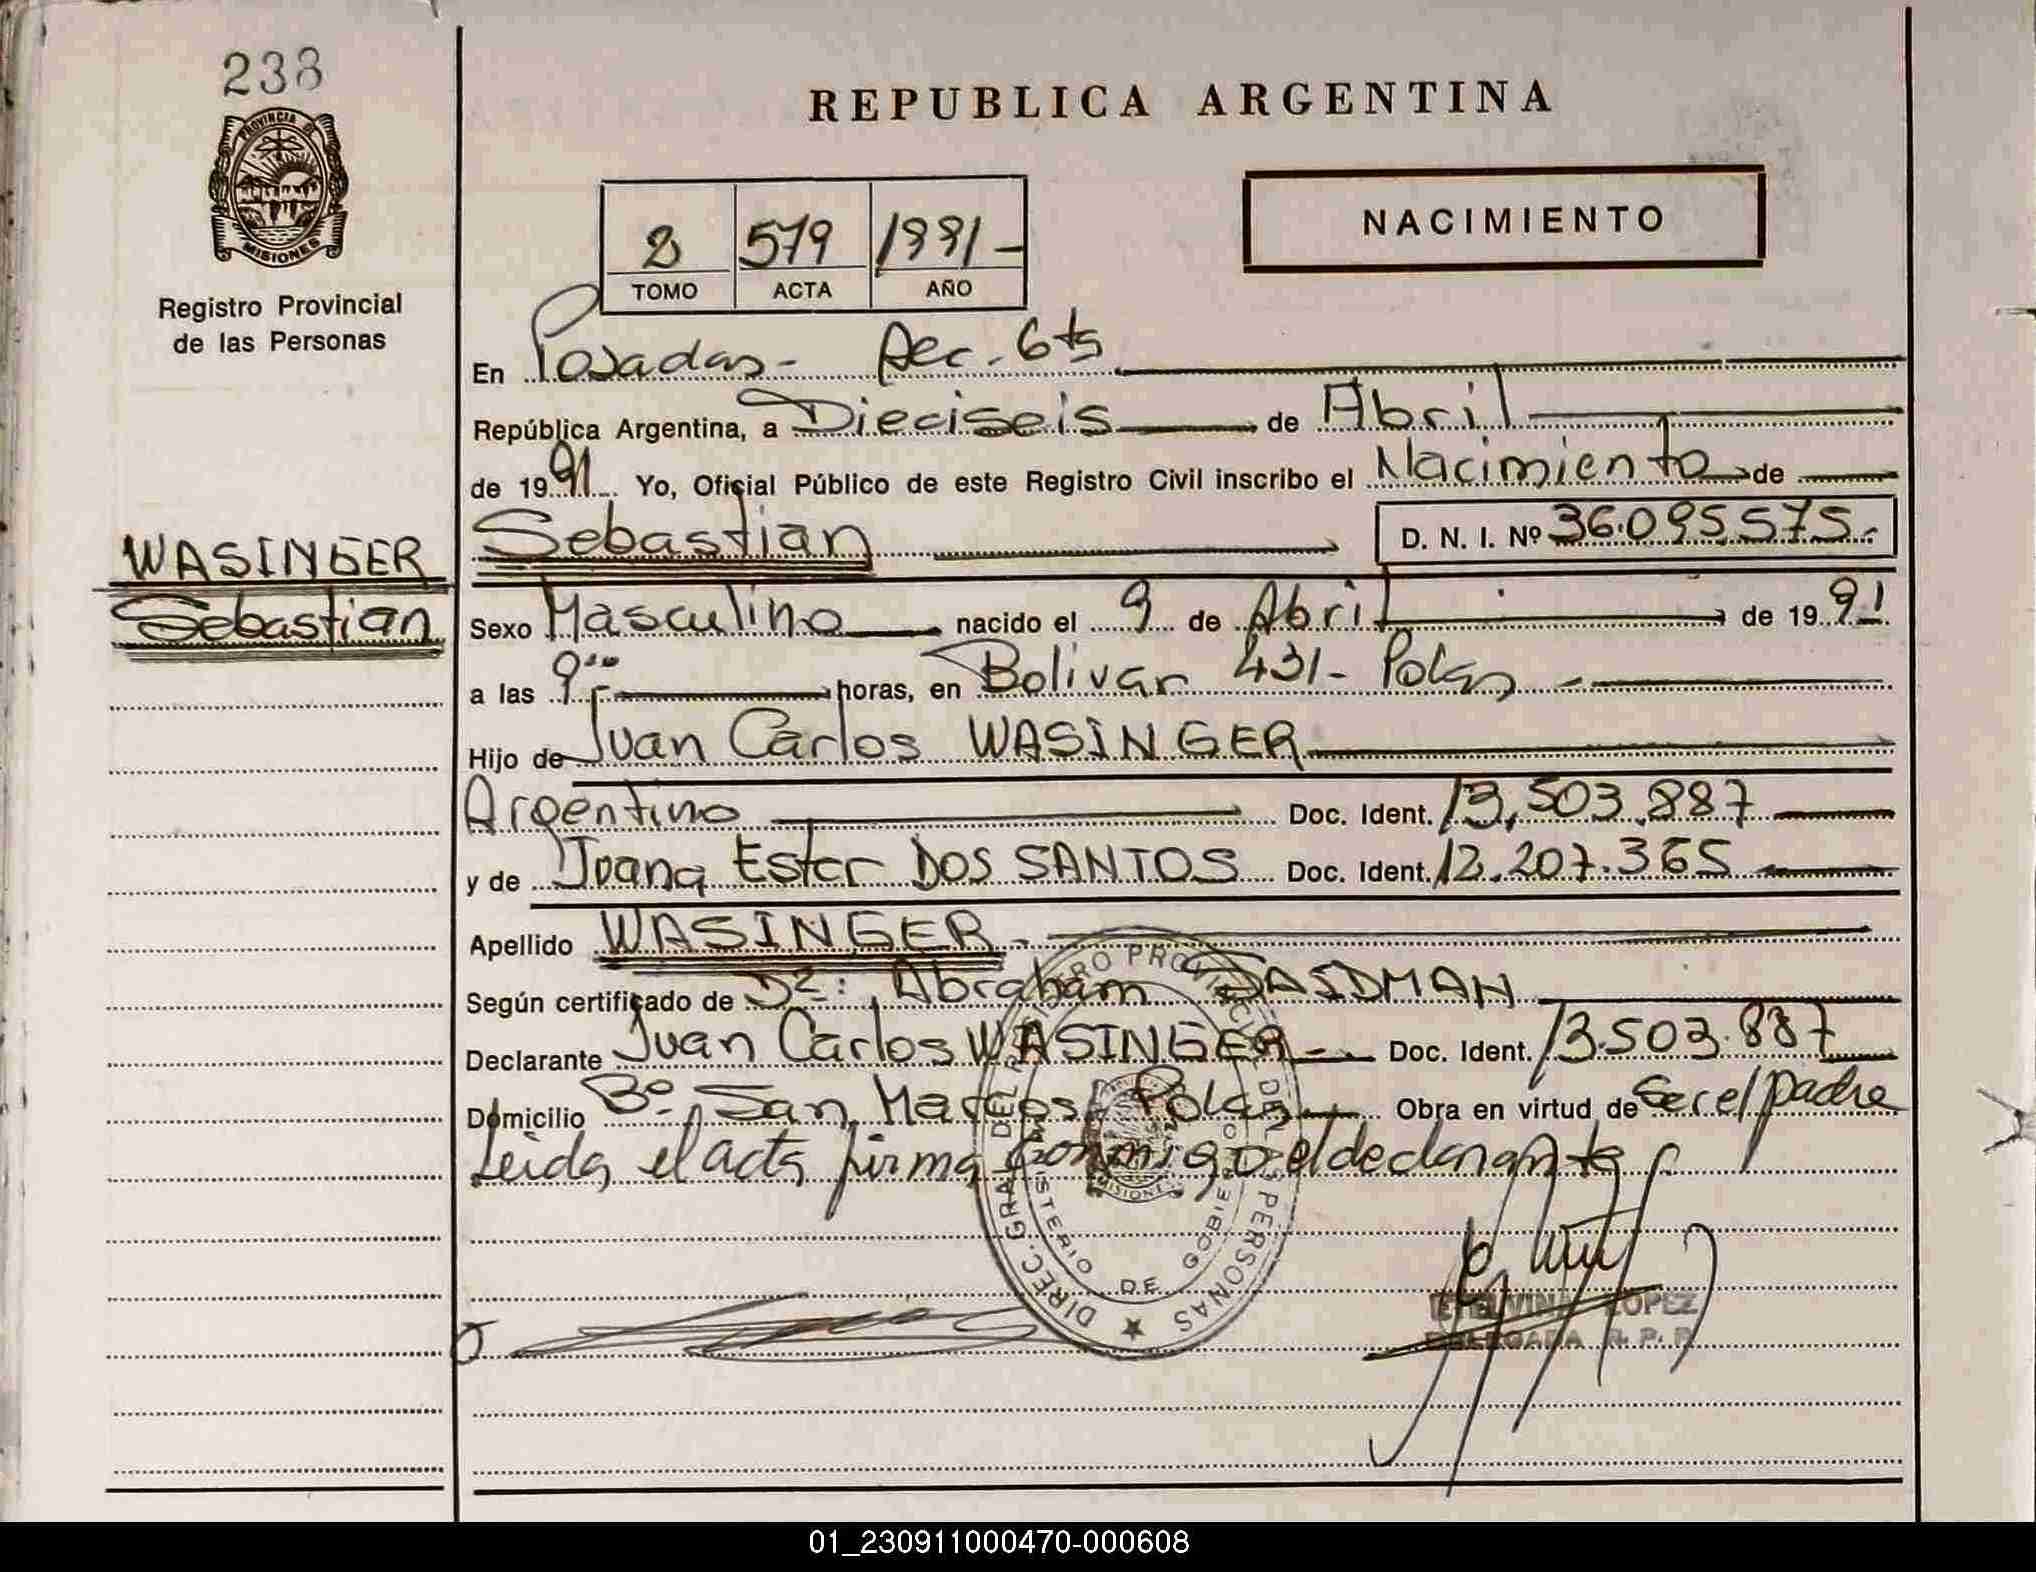 238
PROVINCIA DE
MISIONES
Registro Provincial
de las Personas
WASINGER
Sebastian
REPUBLICA ARGENTINA
2 579 1991-
TOMO ACTA AÑO
NACIMIENTO
En Posadas- Sec. 6ta
República Argentina, a Dieciseis de Abril
de 1991 Yo, Oficial Público de este Registro Civil inscribo el Nacimiento de
Sebastian D. N. I. Nº 36.095.575.-
Sexo Masculino nacido el 9 de Abril de 1991
a las 9 horas, en Bolivar 431- Pdas
Hijo de Juan Carlos WASINGER
Argentino Doc. Ident. 13.503.887
y de Juana Ester DOS SANTOS Doc. Ident. 12.207.365
Apellido WASINGER.-
Según certificado de Dr: Abraham
Declarante Juan Carlos WASINGER Doc. Ident. 13.503.887
Domicilio Bº San Marcos Pdas Obra en virtud de Ser el padre
Leida el acta firma conmigo el declarante
DIREC. GRAL DEL REGISTRO PROVINCIAL DE LAS PERSONAS
MINISTERIO DE GOBIERNO
MISIONES
ETELVINA LOPEZ
DELEGADA R. P. P.
01_230911000470-000608